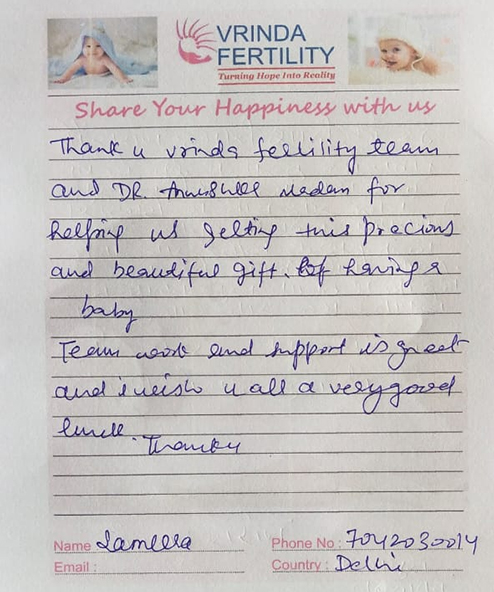 VRINDA
FERTILITY
Turning Hope Into Reality
Share Your Happiness with us
Thank u vrinda fertility team
and DR. madam for
helping us getting this precious
and beautiful gift. of having a
baby
Team work and support is great
and i wish u all a very good
luck. Thanku
Name Sameera
Phone No : 7042030014
Email :
Country : Delhi